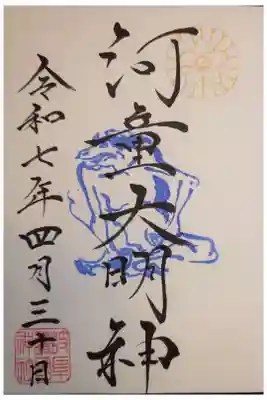 河童大明神
令和七年四月三十日